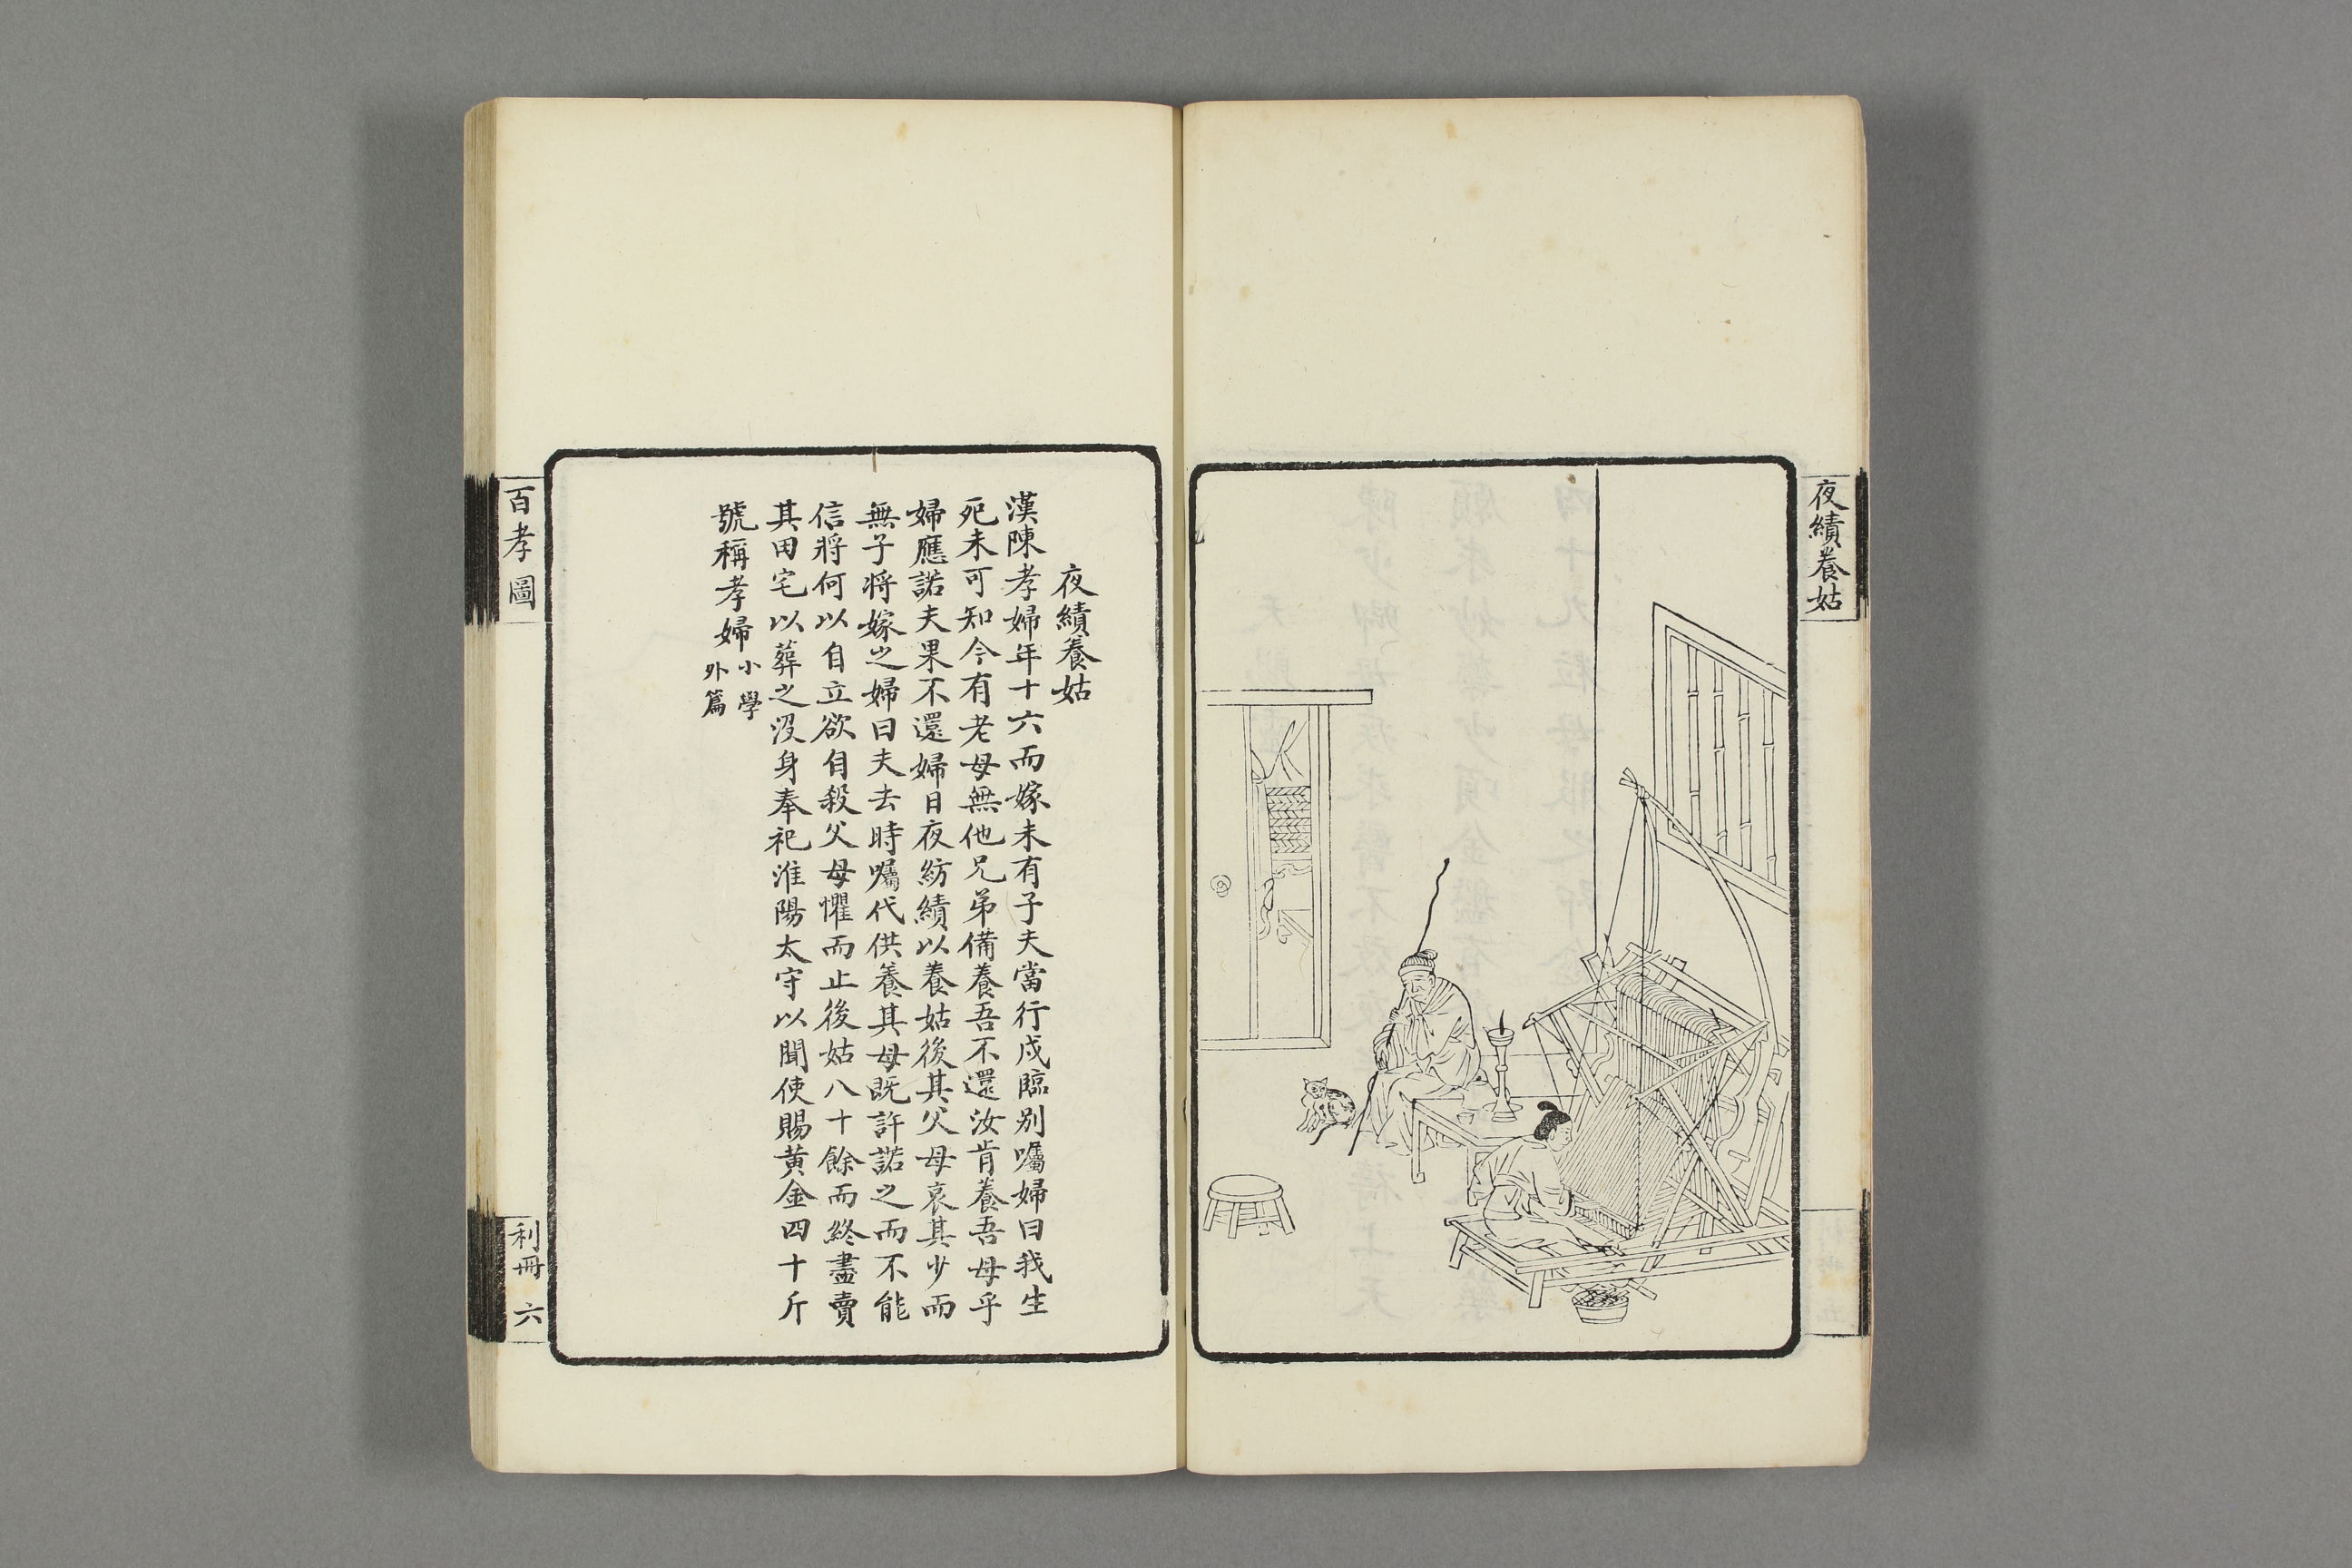 夜績養姑
夜績養姑
漢陳孝婦年十六而嫁未有子夫當行戍臨別囑婦曰我生
死未可知今有老母無他兄弟備養吾不還汝肯養吾母乎
婦應諾夫果不還婦日夜紡績以養姑後其父母哀其少而
無子將嫁之婦曰夫去時囑代供養其母既許諾之而不能
信將何以自立欲自殺父母懼而止後姑八十餘而終盡賣
其田宅以葬之沒身奉祀淮陽太守以聞使賜黃金四十斤
號稱孝婦
小學
外篇
百孝圖
利冊 六